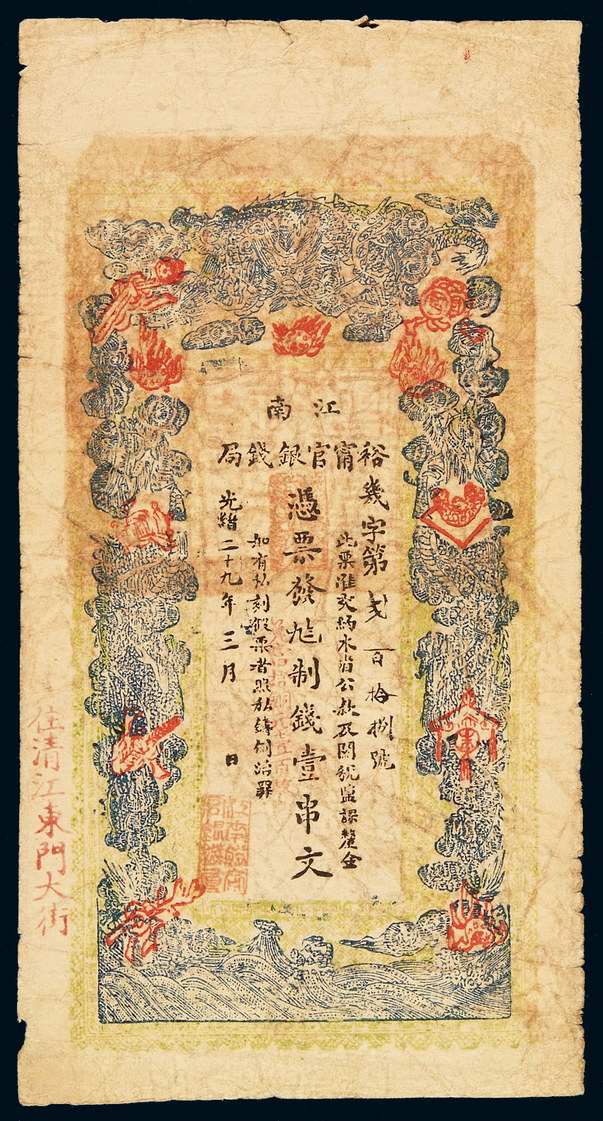 江南
裕甯官銀錢局
幾字第弍百拾捌號
此票准交納本省公款及關稅鹽課釐金
憑票發制錢壹串文
如有私刻假票者照私鑄例治罪
光緒二十九年三月 日
住清江東門大街